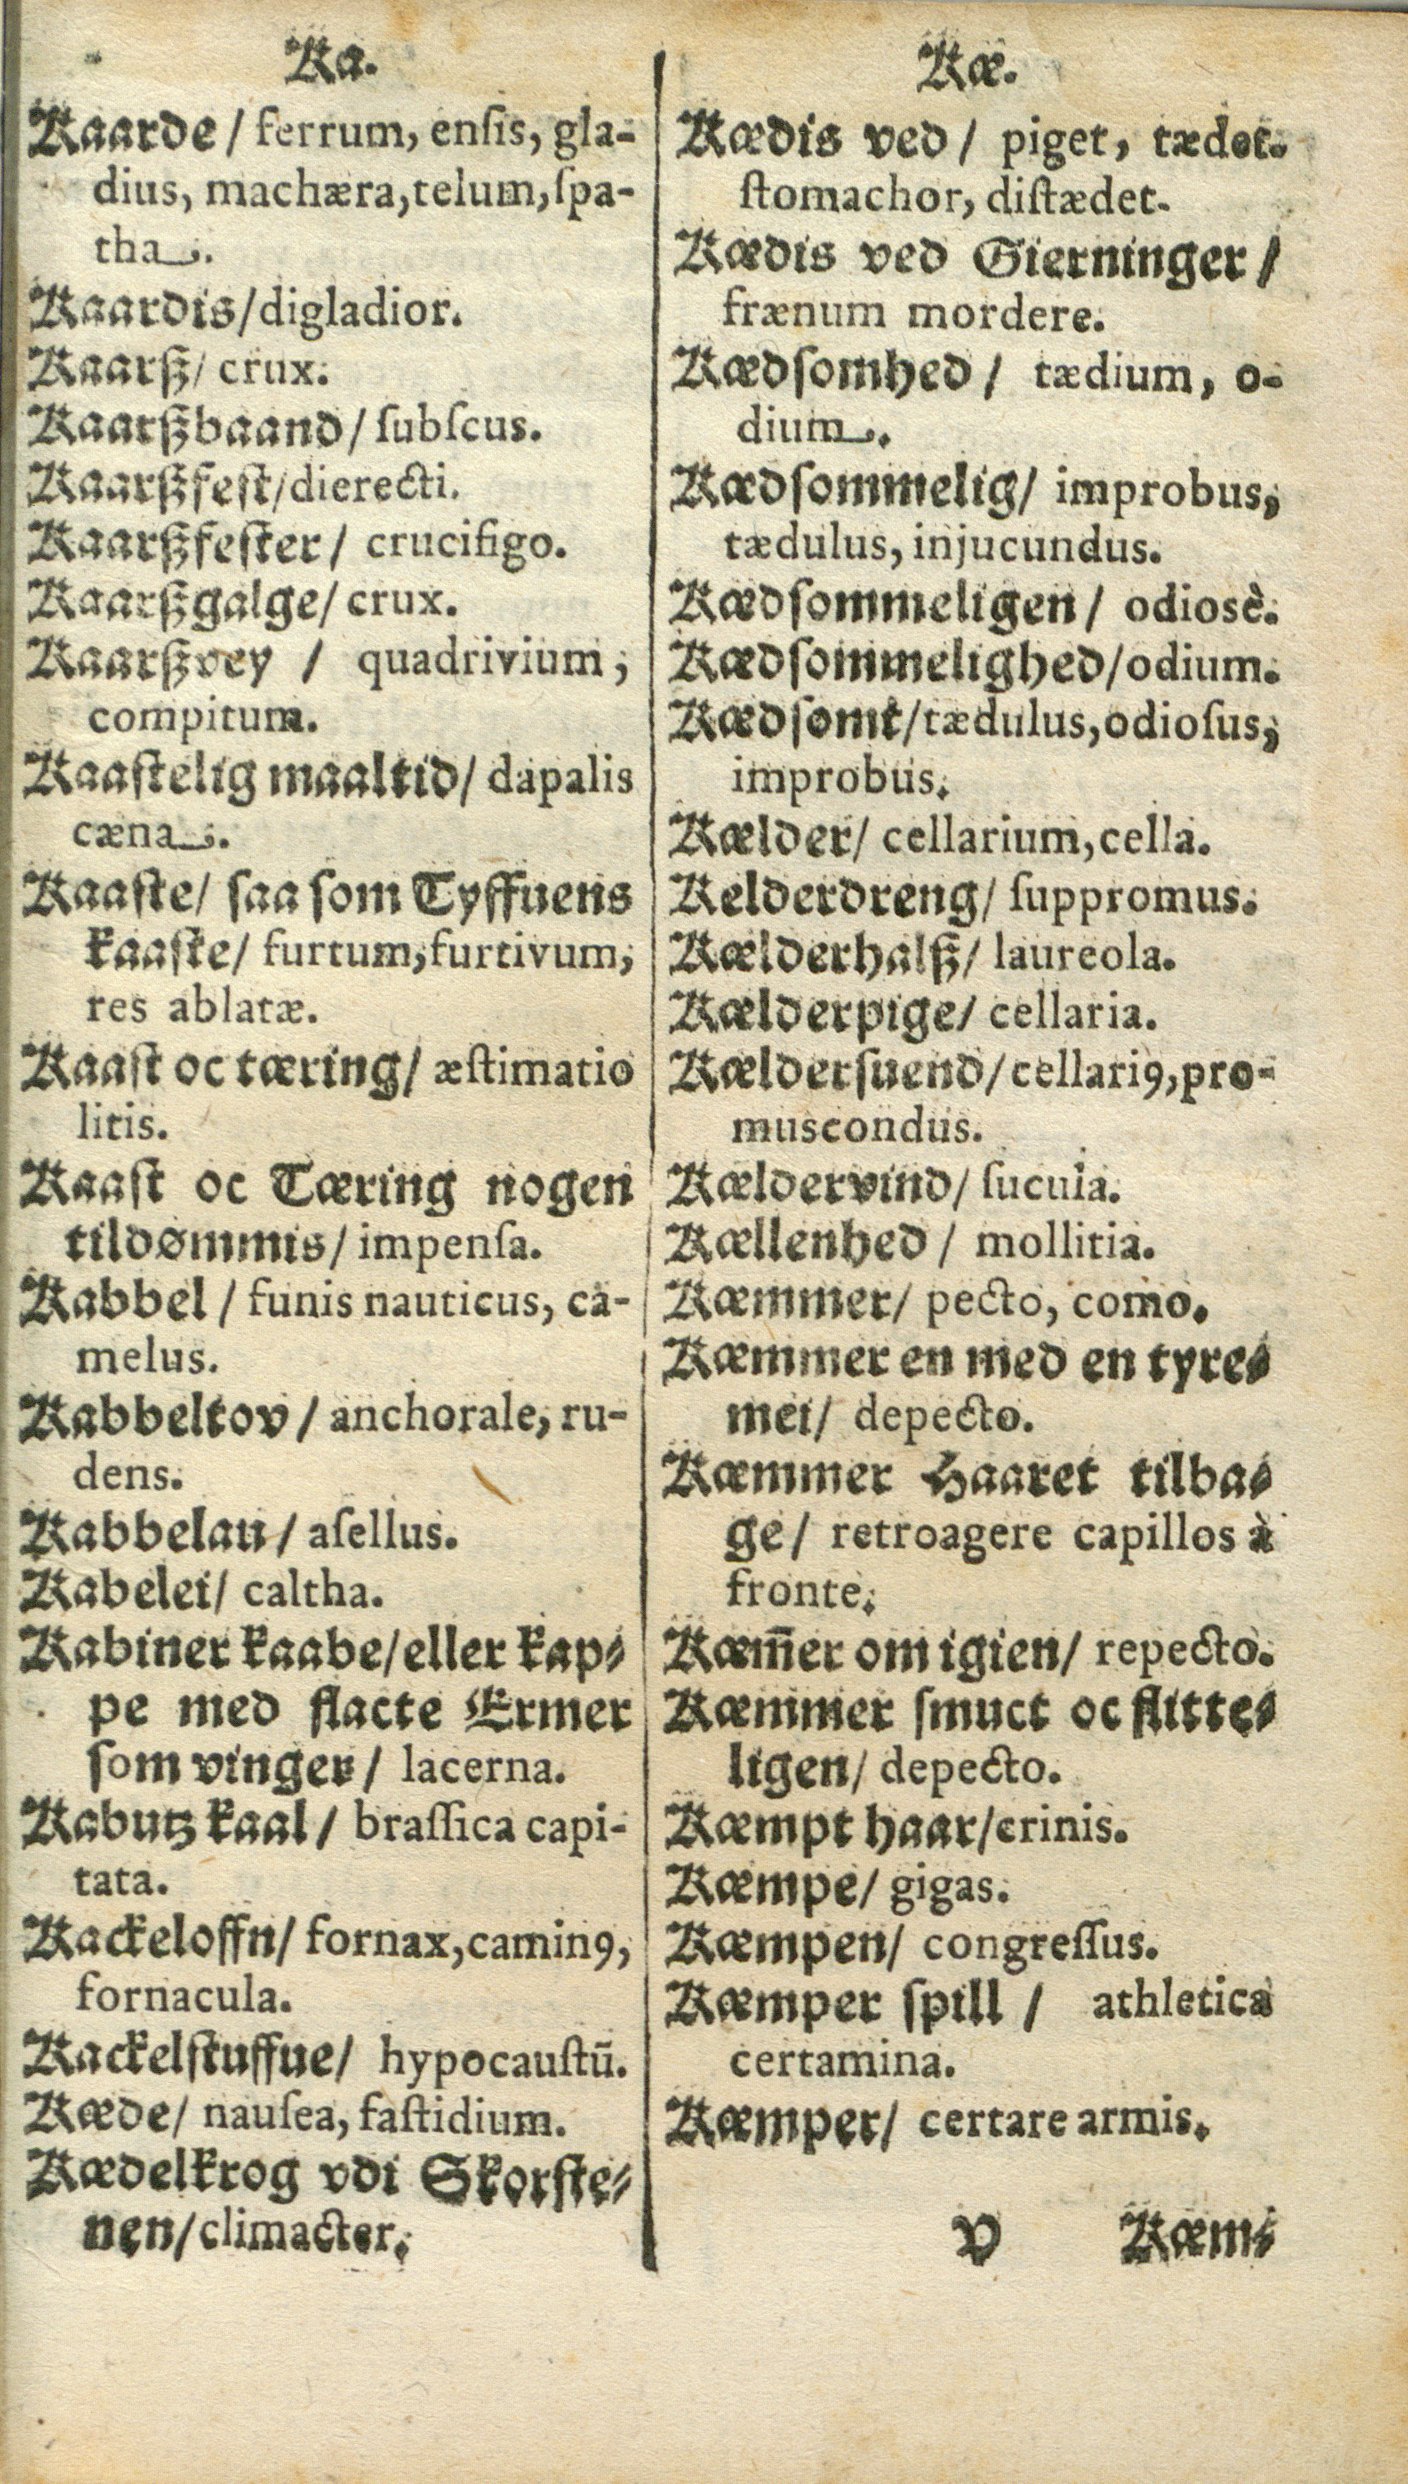 Ka.
Kaarde/ ferrum, enſis, gla-
dius, machæra, telum, ſpa-
tha.
Kaardis/ digladior.
Kaarß/ crux.
Kaarßbaand/ ſubſcus.
Kaarßfeſt/ dierecti.
Kaarßfeſter/ crucifigo.
Kaarßgalge/ crux.
Kaarßvey / quadrivium,
compitum.
Kaaſtelig maaltid/ dapalis
cæna.
Kaaſte/ ſaa ſom Tyffuens
kaaſte/ furtum, furtivum,
res ablatæ.
Kaaſt oc tæring/ æſtimatio
litis.
Kaaſt oc Tæring nogen
tildømmis/ impenſa.
Kabbel / funis nauticus, ca-
melus.
Kabbeltov / anchorale, ru-
dens.
Kabbelau / aſellus.
Kabelei/ caltha.
Kabiner kaabe/ eller kap-
pe med flacte Ermer
ſom vinger/ lacerna.
Kabutz kaal / braſſica capi-
tata.
Kackeloffn/ fornax, caminꝰ,
fornacula.
Kackelſtuffue/ hypocauſtū.
Kæde/ nauſea, faſtidium.
Kædelkrog vdi Skorſte-
nen/ climacter.
Kæ.
Kædis ved / piget, tædet.
ſtomachor, diſtædet.
Kædis ved Gierninger /
frænum mordere.
Kædſomhed / tædium, o-
dium.
Kædſommelig/ improbus,
tædulus, injucundus.
Kædſommeligen / odiosè.
Kædſommelighed/ odium.
Kædſomt/ tædulus, odioſus,
improbus.
Kælder/ cellarium, cella.
Kelderdreng/ ſuppromus.
Kælderhalß/ laureola.
Kælderpige/ cellaria.
Kælderſuend/ cellariꝰ, pro-
muscondus.
Kældervind/ ſucula.
Kællenhed / mollitia.
Kæmmer/ pecto, como.
Kæmmer en med en tyre-
mei/ depecto.
Kæmmer Haaret tilba-
ge/ retroagere capillos à
fronte.
Kæm̃er om igien/ repecto.
Kæmmer ſmuct oc flitte-
ligen/ depecto.
Kæmpt haar/ crinis.
Kæmpe/ gigas.
Kæmpen/ congreſſus.
Kæmper ſpill / athletica
certamina.
Kæmper/ certare armis.
V Kæm-